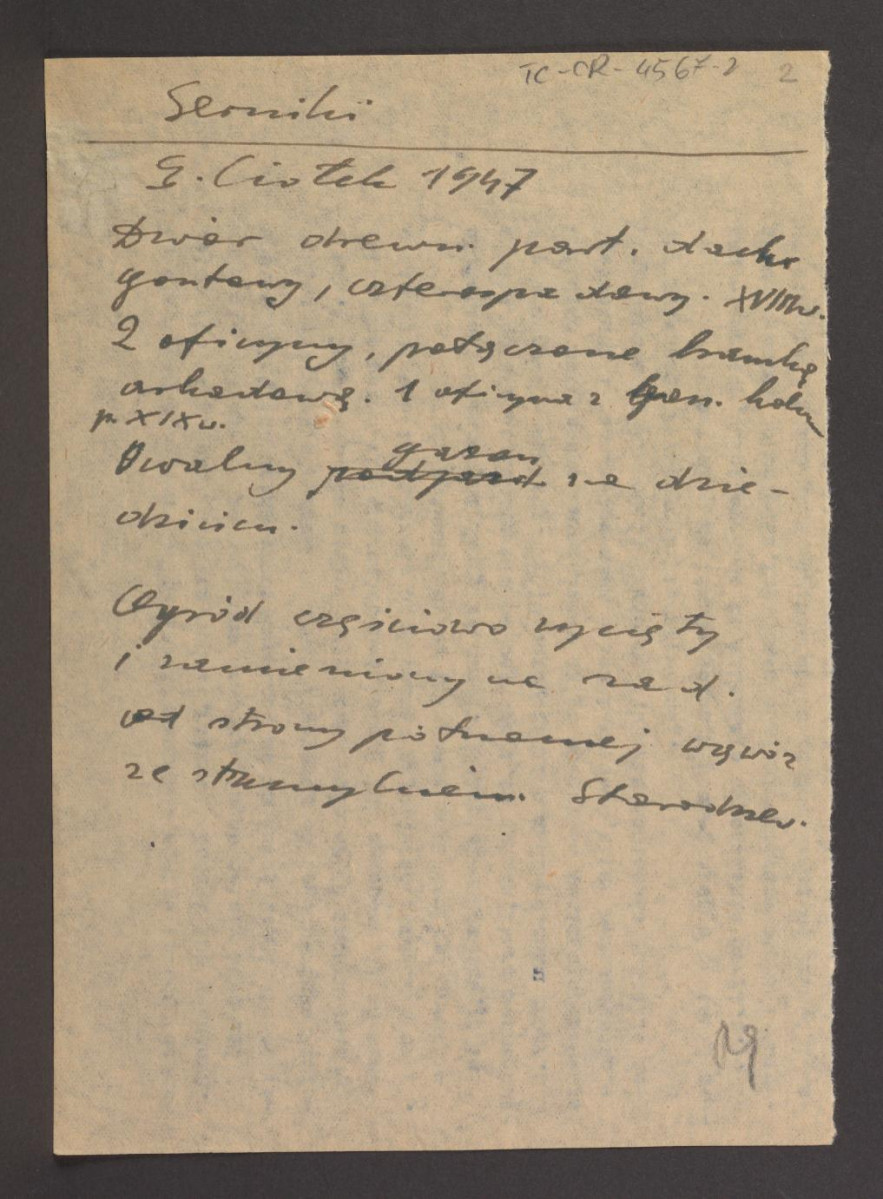 TC-CR-4567-2 2
Serniki
G. Ciołek 1947
Dwór drewn. part. dach
gontowy, czterospadowy. XVIIIw.
2 oficyny, połączone bramką
arkadową. 1 oficyna z
p. XIXw.
gazon
Owalny podjazd na dzie-
dzińcu.
Ogród częściowo wycięty
i zamieniony na sad.
od strony północnej wąwóz
ze strumykiem. Starodrzew.